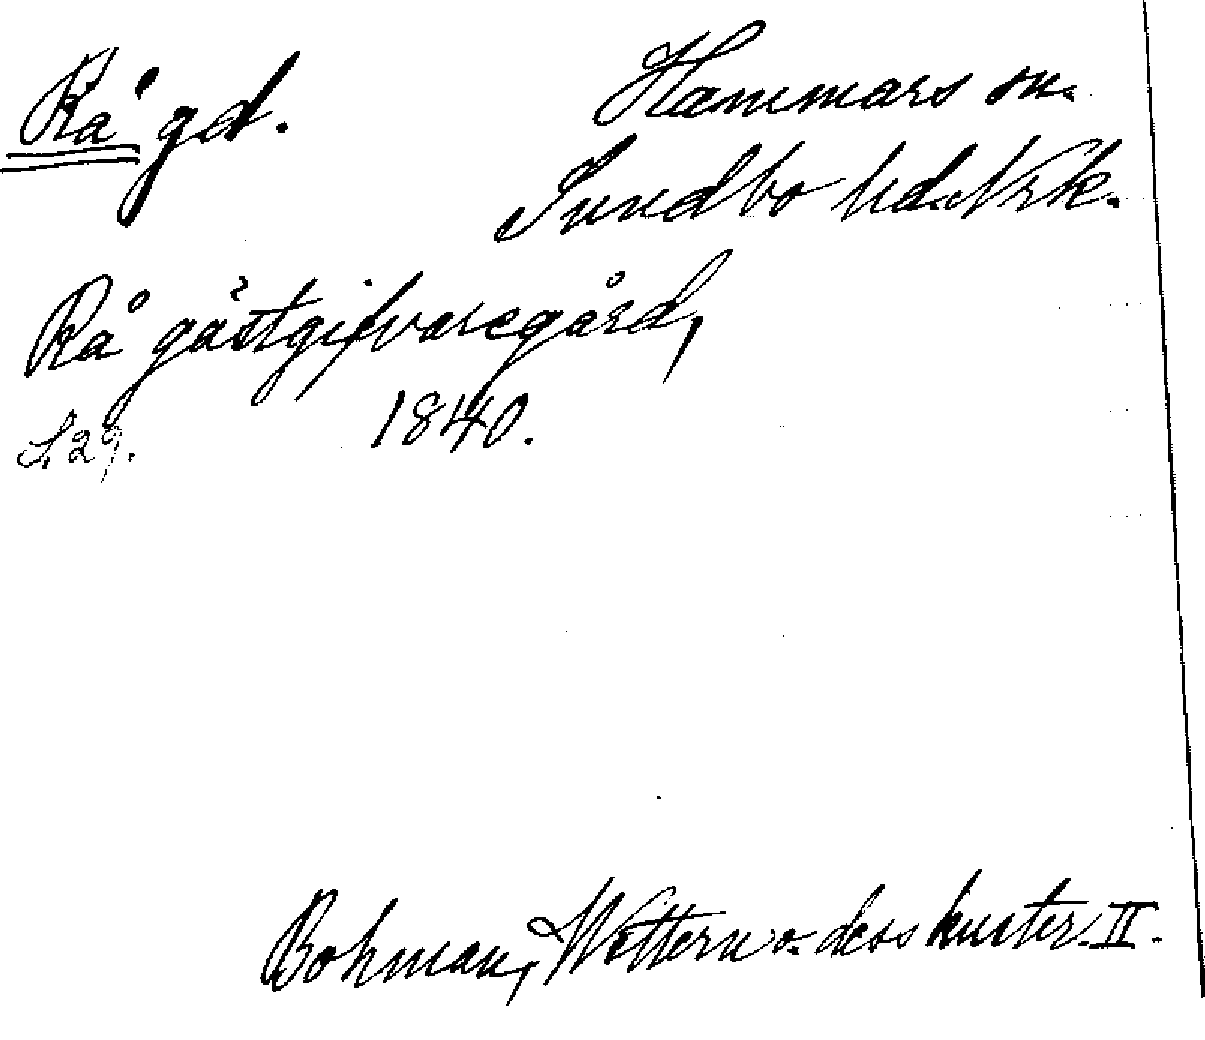 Rå gd.
Hammars sn.
Sundbo hd. Nrk.
Rå gästgifvaregård,
1840.
S. 29.
Bohman, Wettern o. dess kuster. II.